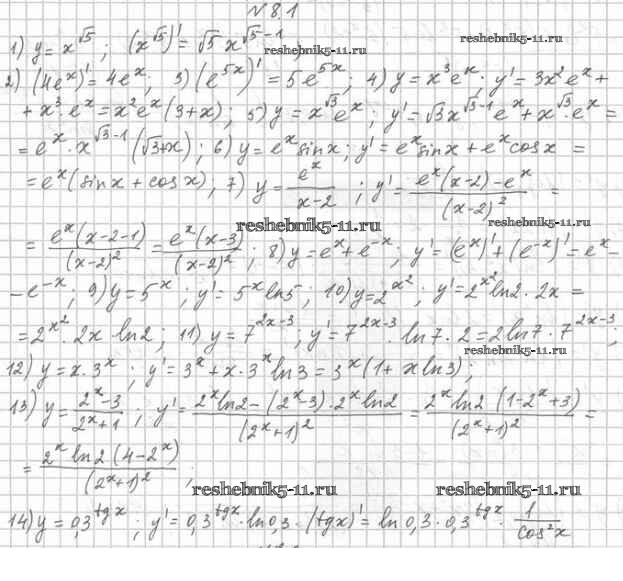 №8.1
1) y = x^√5 ; (x^√5)' = √5 x^(√5-1) ;
reshebnik5-11.ru
2) (4e^x)' = 4e^x; 3) (e^5x)' = 5e^5x; 4) y = x³e^x; y' = 3x²e^x +
+ x³·e^x = x²e^x(3+x); 5) y = x^√3 e^x; y' = √3 x^(√3-1) e^x + x^√3·e^x =
reshebnik5-11.ru
= e^x·x^(√3-1) (√3+x); 6) y = e^x sinx; y' = e^x sinx + e^x cosx =
= e^x(sinx + cosx); 7) y = e^x/(x-2) ; y' = (e^x(x-2) - e^x)/(x-2)² =
reshebnik5-11.ru
reshebnik5-11.ru
= e^x(x-2-1)/(x-2)² = e^x(x-3)/(x-2)² ; 8) y = e^x + e^-x; y' = (e^x)' + (e^-x)' = e^x -
- e^-x; 9) y = 5^x; y' = 5^x ln5; 10) y = 2^x²; y' = 2^x² ln2·2x =
= 2^x²·2x·ln2; 11) y = 7^(2x-3); y' = 7^(2x-3)·ln7·2 = 2ln7·7^(2x-3);
reshebnik5-11.ru
12) y = x·3^x ; y' = 3^x + x·3^x ln3 = 3^x(1 + x ln3);
13) y = (2^x-3)/(2^x+1) ; y' = (2^x ln2 - (2^x-3)·2^x ln2)/(2^x+1)² = 2^x ln2 (1-2^x+3)/(2^x+1)² =
= 2^x ln2 (4-2^x)/(2^x+1)² ;
reshebnik5-11.ru
reshebnik5-11.ru
14) y = 0,3^tgx ; y' = 0,3^tgx·ln0,3·(tgx)' = ln0,3·0,3^tgx·1/cos²x